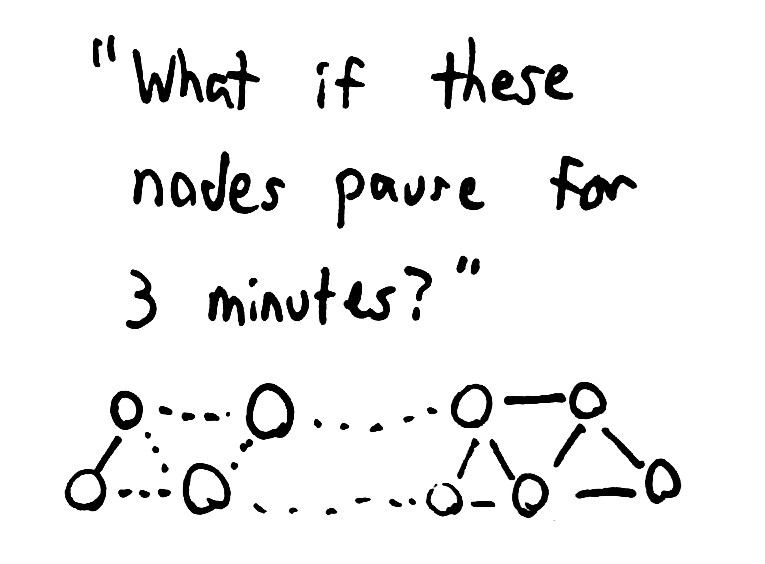 "What if these
nodes pause for
3 minutes?"